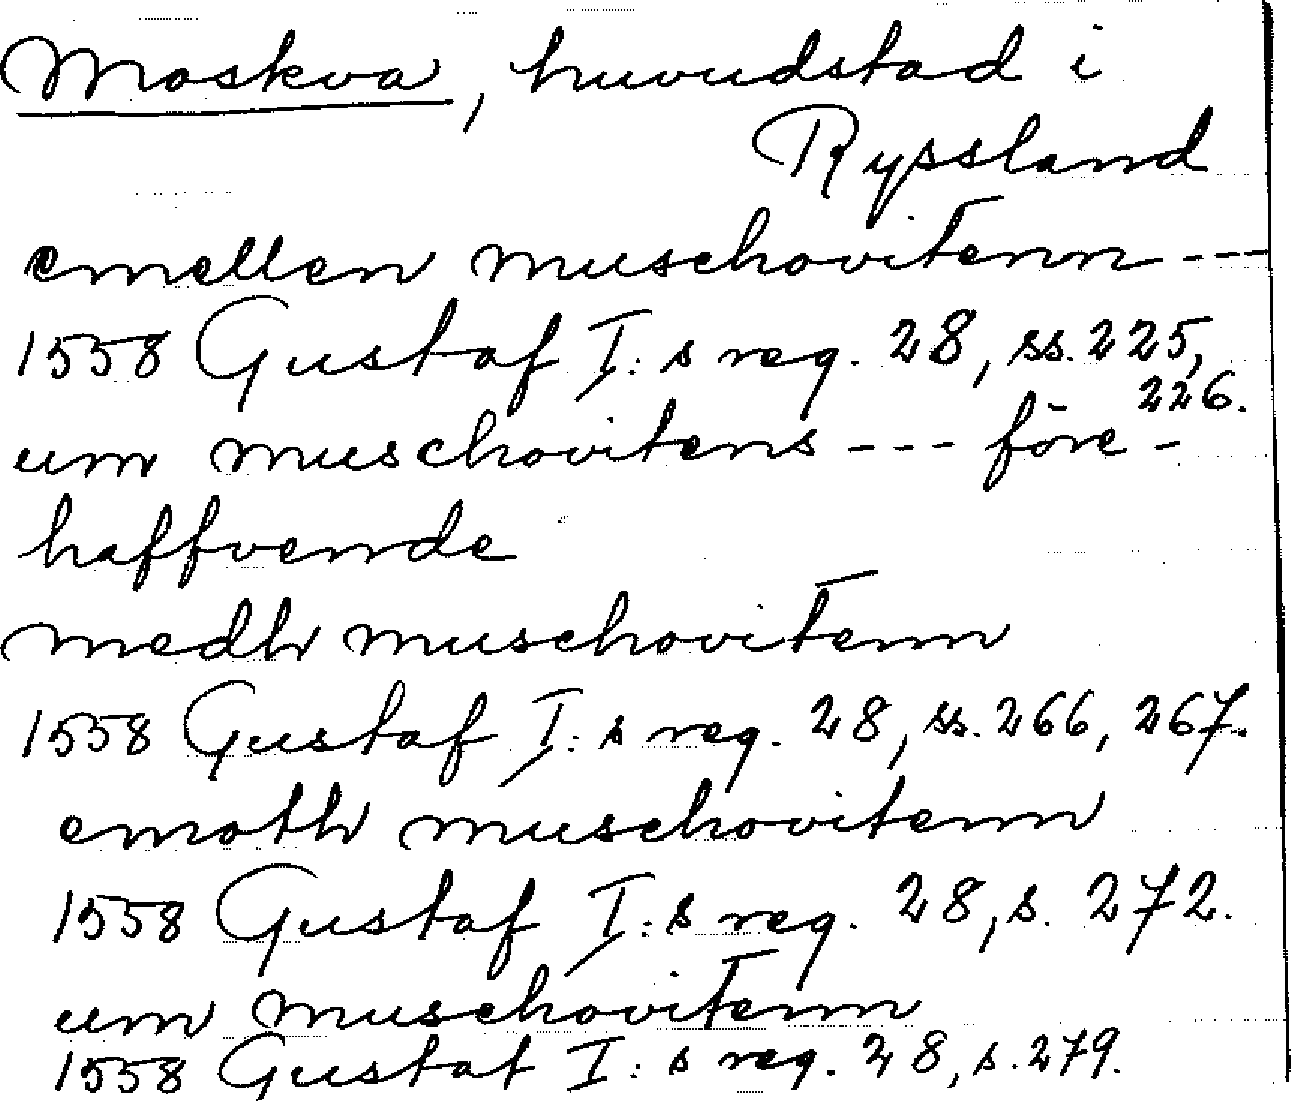 Moskva, huvudstad i
Ryssland
emellen muschovitenn ---
1558 Gustaf I:s reg. 28, ss. 225,
226.
um muschovitens --- före-
haffvende
medh muschovitenn
1558 Gustaf I:s reg. 28, ss. 266, 267.
emoth muschovitenn
1558 Gustaf I:s reg. 28, s. 272.
um muschovitenn
1558 Gustaf I:s reg. 28, s. 279.